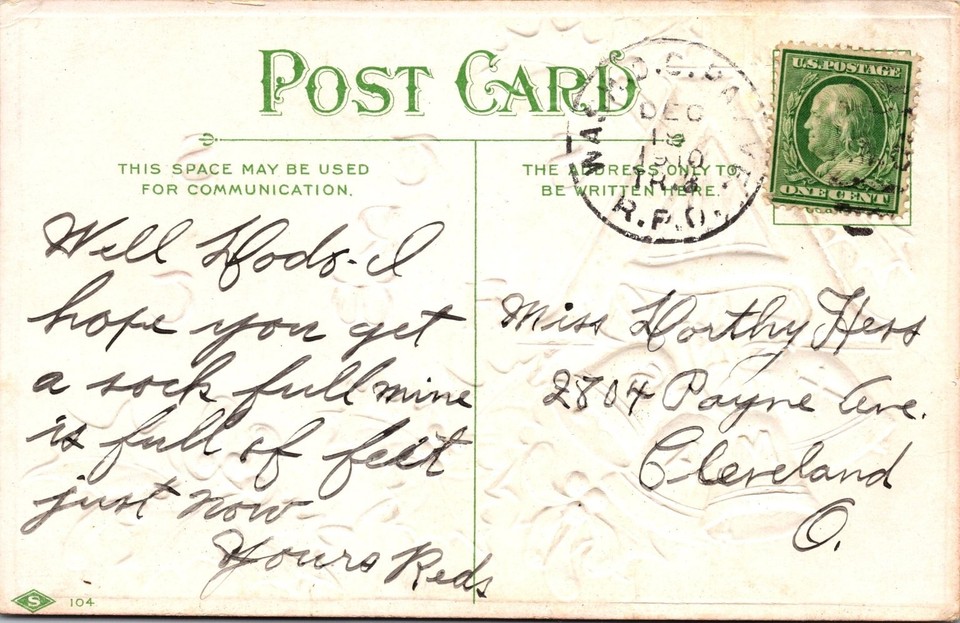 POST CARD
THIS SPACE MAY BE USED
FOR COMMUNICATION.
THE ADDRESS ONLY TO
BE WRITTEN HERE.
DEC
1910
R.P.O.
U.S. POSTAGE
ONE CENT
Well Dods - I
hope you get
a sock full mine
is full of feet
just now
Yours Reds
Miss Dorthy Hess
2804 Payne Ave.
Cleveland
O.
S 104